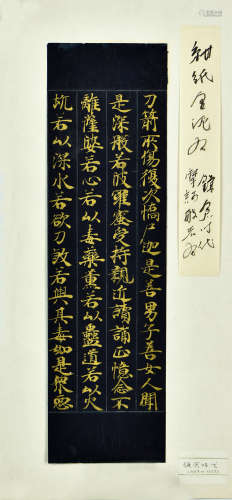 紺紙金泥経
鎌倉時代
摩訶般若経
刀箭所傷復次憍尸迦是善男子善女人聞
是深般若波羅蜜受持親近讀誦正憶念不
離薩婆若心若以毒藥熏若以蠱道若以火
坑若以深水若欲刀殺若與其毒如是眾惡